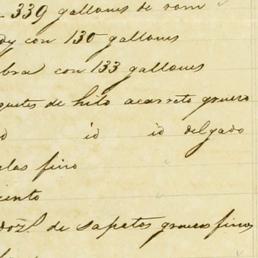 339 gallones de rom
dy con 130 gallones
bra con 133 gallones
quetes de hilo acarreto grueso
id id delgado
las fino
iento
doz. de sapatos gruesos finos